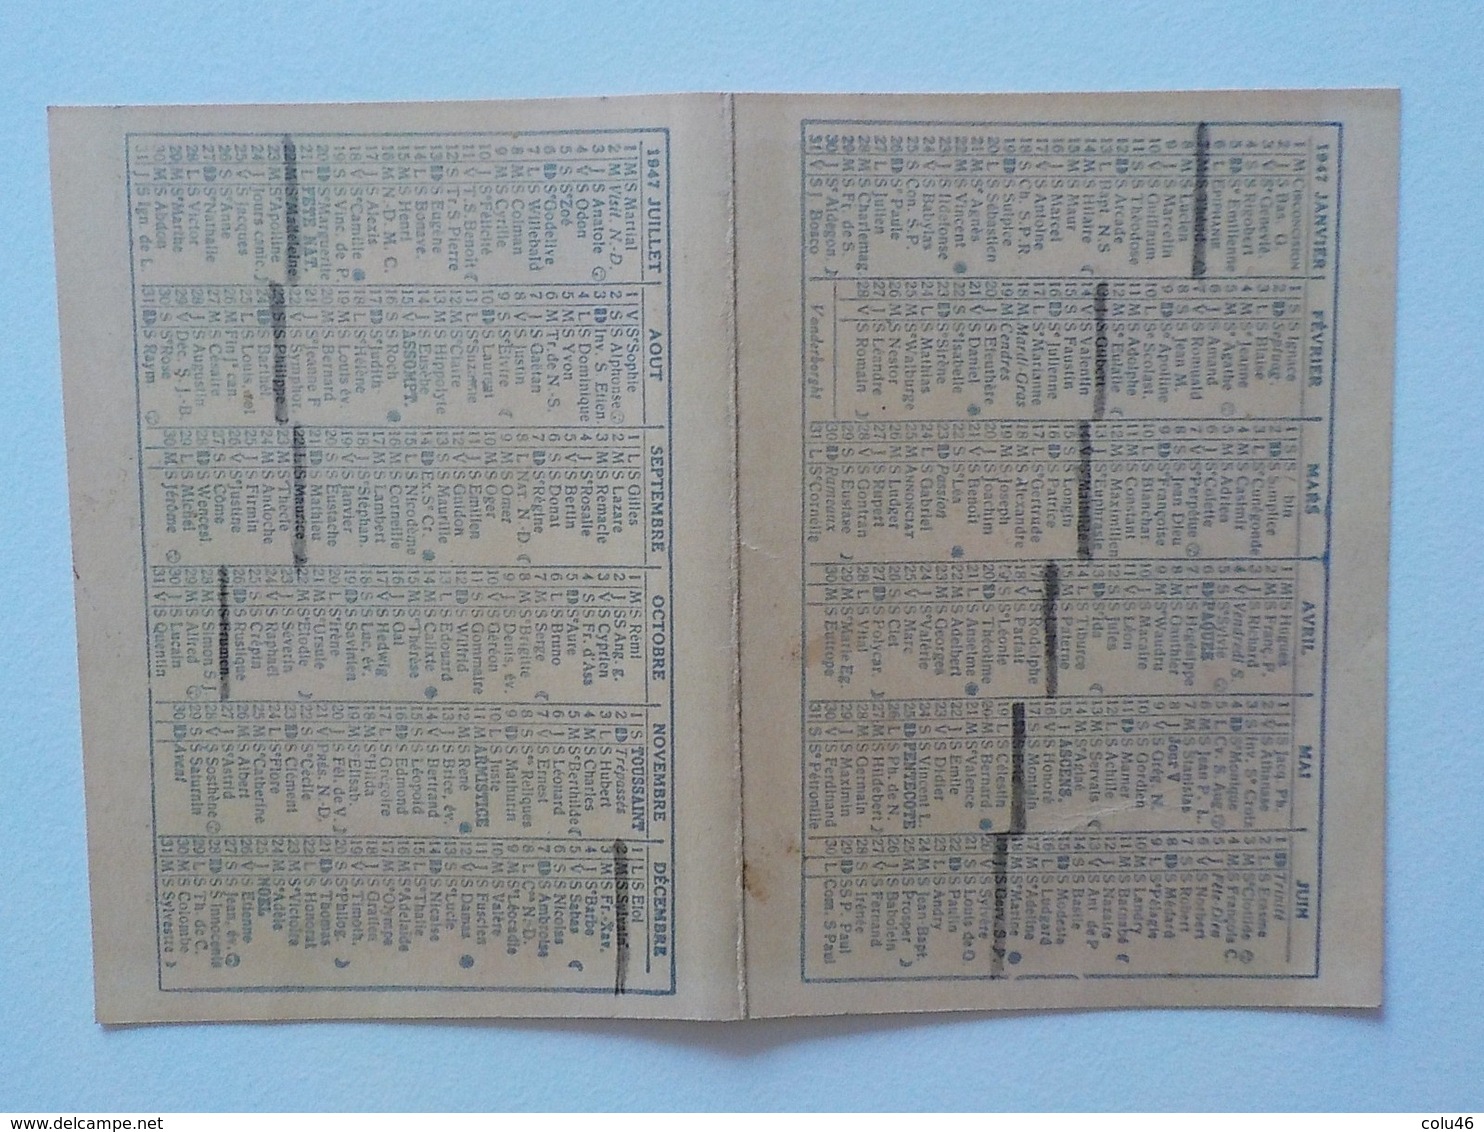 1947 JANVIER
1 M CIRCONCISION
2 J Bas. G
3 V Sᵉ Geneviè.
4 S Rigobert
5 D Sᵉ Emilienne
6 L EPIPHANIE
8 M S Lucien
9 J S Marcelin
10 V S Guillaum
11 S S Théodose
12 D S Arcade
13 L Bapt N.S
14 M S Hilaire
15 M S Maur
16 J S Marcel
17 V S Antoine
18 S Ch. S.P.R
19 D S Sulpice
20 L S Sébastien
21 M Sᵉ Agnès
22 M S Vincent
23 J S Ildefonse
24 V S Babylas
25 S Con. S.P
26 D Sᵉ Paule
27 L S Julien
28 M S Charlemag.
29 M S Fr. de S.
30 J Sᵉ Aldegon.
31 V S J Bosco
FÉVRIER
1 S S Ignace
2 D Septuag.
3 L S Blaise
4 M Sᵉ Jeanne
5 M Sᵉ Agathe
6 J S Amand
7 V S Romuald
8 S S Jean M.
9 D Sᵉ Apolline
10 L Sᵉ Scolast.
11 M S Adolphe
12 M Sᵉ Eulalie
14 V S Valentin
15 S S Faustin
16 D Sᵉ Julienne
17 L Sᵉ Marianne
18 M Mardi-Gras
19 M Cendres
20 J S Eleuthère
21 V S Daniel
22 S Sᵉ Isabelle
23 D S Sirène
24 L S Mathias
25 M Sᵉ Walburge
26 M S Nestor
27 J S Léandre
28 V S Romain
Vanderborght
MARS
1 S S Albin
2 D S Simplice
3 L Sᵉ Cunégonde
4 M S Casimir
5 M S Adrien
6 J Sᵉ Colette
7 V Sᵉ Perpétue
8 S S Jean Dieu
9 D Sᵉ Françoise
10 L S Blanchar
11 M S Constant
12 M S Maximilien
13 J Sᵉ Euphrasie
15 S S Longin
16 D S Patrice
17 L Sᵉ Gertrude
18 M S Alexandre
19 M S Joseph
20 J S Joachim
21 V S Benoît
22 S Sᵉ Léa
23 D Passion
24 L S Gabriel
25 M ANNONCIAT
26 M S Ludger
27 J S Rupert
28 V S Gontran
29 S S Eustase
30 D Rameaux
31 L Sᵉ Cornelle
AVRIL
1 M S Hugues
2 M S Franç. P.
3 J S Richard
4 V Vendredi S.
5 S Sᵉ Sylvie
6 D PAQUES
7 L S Hégésippe
8 M S Gauthier
9 M Sᵉ Waudru
10 J S Macaire
11 V S Léon
12 S S Jules
13 D Sᵉ Ida
14 L S Tiburce
15 M S Paterne
17 J S Rodolphe
18 V S Parfait
19 S Sᵉ Léonie
20 D S Théotime
21 L S Anselme
22 M S Adelbert
23 M S Georges
24 J Sᵉ Valérie
25 V S Marc
26 S S Clet
27 D S Polycar.
28 L S Vital
29 M Sᵉ Marie Eg.
30 M S Eutrope
MAI
1 J S Jacq. Ph.
2 V S Athanase
3 S Inv. Sᵉ Croix
4 D Sᵉ Monique
5 L Cv. S. Aug.
6 M S Jean P. L.
7 M S Stanislas
8 J Jour V
9 V S Grég. N.
10 S S Gordien
11 D S Mamer
12 L S Achille
13 M S Servais
14 M Sᵉ Aglaé
15 J ASCENS.
16 V S Honoré
19 L S Célestin
20 M S Bernard
21 M Sᵉ Valence
22 J S Emile
23 V S Didier
24 S S Vincent L.
25 D PENTECOTE
26 L S Ph. de N.
27 M S Hildebert
28 M S Germain
29 J S Maximin
30 V S Ferdinand
31 S Sᵉ Pétronille
JUIN
1 D Trinité
2 L S Erasme
3 M Sᵉ Clotilde
4 M S François C.
5 J Fête-Dieu
6 V S Norbert
7 S S Robert
8 D S Médard
9 L Sᵉ Pélagie
10 M S Landry
11 M S Barnabé
12 J S Nazaire
13 V S Ant. de P
14 S S Basile
15 D S Modeste
16 L S Ludgard
17 M Sᵉ Adeline
18 M Sᵉ Marine
19 J S Gerv. S. P.
20 V S Sylvère
21 S S Louis de G.
22 D S Paulin
23 L S Andry
24 M S Jean Bapt
25 M S Prosper
26 J S Babolein
27 V S Fernand
28 S S Irénée
29 D SS P. Paul
30 L Com. S Paul
1947 JUILLET
1 M S Martial
2 M Visit. N.-D.
3 J S Anatole
4 V S Odon
5 S Sᵉ Zoé
6 D Sᵉ Godelive
7 L S Willebald
8 M S Colman
9 M S Cyrille
10 J Sᵉ Félicité
11 V T.S. Benoit
12 S Tr. S Pierre
13 D S Eugène
14 L S Bonav.
15 M S Henri
16 M N.D.M.C.
17 J S Alexis
18 V S Camille
19 S S Vinc. de P.
20 D Sᵉ Marguerite
21 L FÊTE NAT.
22 M Sᵉ Madeleine
23 M S Apolline
24 J Jours canic.
25 V S Jacques
26 S Sᵉ Anne
27 D Sᵉ Nathalie
28 L S Victor
29 M Sᵉ Marthe
30 M S Abdon
31 J S Ign. de L.
AOUT
1 V Sᵉ Sophie
2 S S Alphonse
3 D Inv. S. Etien.
4 L S Dominique
5 M S Yvon
6 M Tr. de N.-S.
7 J S Gaëtan
8 V S Justin
9 S S Evitre
10 D S Laurent
11 L Sᵉ Suzanne
12 M Sᵉ Claire
13 M S Hippolyte
14 J S Eusèbe
15 V ASSOMPT.
16 S S Roch
17 D Sᵉ Judith
18 L Sᵉ Hélène
19 M S Louis év.
20 M S Bernard
21 J Sᵉ Jeanne F
22 V S Symphor.
23 S S Philippe
24 D S Barthél
25 L S Louis, roi
26 M Fin j. can
27 M S Césaire
28 J S Augustin
29 V Déc. S. J.-B.
30 S Sᵉ Rose
31 D S Raym
SEPTEMBRE
1 L S Gilles
2 M S Lazare
3 M S Remacle
4 J Sᵉ Rosalie
5 V S Bertin
6 S S Donat
7 D Sᵉ Régine
8 L NAT. N.-D
9 M S Omer
10 M S Oger
11 J S Emilien
12 V S Guidon
13 S S Maurille
14 D Ex. Sᵉ Cr.
15 L S Nicodème
16 M S Corneille
17 M S Lambert
18 J S Stéphan.
19 V S Janvier
20 S S Eustache
21 D S Mathieu
22 L S Maurice
23 M Sᵉ Thècle
24 M S Andoche
25 J S Firmin
26 V Sᵉ Justine
27 S S Côme
28 D S Wencesl
29 L S Michel
30 M S Jérôme
OCTOBRE
1 M S Rémi
2 J SS Ang. g.
3 V S Cyprien
4 S S Fr. d'Ass
5 D Sᵉ Aure
6 L S Bruno
7 M S Serge
8 M Sᵉ Brigitte
9 J S Denis, év.
10 V S Géréon
11 S S Gommaire
12 D S Wilfrid
13 L S Edouard
14 M S Calixte
15 M Sᵉ Thérèse
16 J S Gal
17 V Sᵉ Hedwig
18 S S Luc, év.
19 D S Savinien
20 L Sᵉ Irène
21 M Sᵉ Ursule
22 M Sᵉ Elodie
23 J S Séverin
24 V S Raphaël
25 S S Crépin
26 D S Rustique
27 L S Frumen.
28 M S Simon S J.
29 M S Alfred
30 J S Lucain
31 V S Quentin
NOVEMBRE
1 S TOUSSAINT
2 D Trépassés
3 L S Hubert
4 M S Charles
5 M Sᵉ Berthilde
6 J S Léonard
7 V S Ernest
8 S Sᵉˢ Reliques
9 D S Mathurin
10 L S Juste
11 M ARMISTICE
12 M S René
13 J S Brice, év.
14 V S Bertrand
15 S S Léopold
16 D S Edmond
17 L S Grégoire
18 M Sᵉ Hilda
19 M S Elisab.
20 J S Fél. de V.
21 V Prés. N.-D.
22 S Sᵉ Cécile
23 D S Clément
24 L Sᵉ Flore
25 M Sᵉ Catherine
26 M S Albert
27 J S Astrid
28 V S Sosthène
29 S S Saturnin
30 D Avent
DÉCEMBRE
1 L S Eloi
3 M S Fr. Xav.
4 J Sᵉ Barbe
5 V S Sabas
6 S S Nicolas
7 D S Ambroise
8 L Cᵒⁿ N.-D.
9 M Sᵉ Léocadie
10 M S Valère
11 J S Fuscien
12 V S Damas
13 S Sᵉ Lucie
14 D S Nicaise
15 L Sᵉ Thaïs
16 M Sᵉ Adélaïde
17 M Sᵉ Olympe
18 J S Gratien
19 V S Timoth.
20 S Sᵉ Philog.
21 D S Thomas
22 L S Honorat
23 M Sᵉ Victoire
24 M Sᵉ Adèle
25 J NOËL
26 V S Etienne
27 S S Jean, év.
28 D SS Innocents
29 L S Th. de C.
30 M S Colombe
31 M S Sylvestre
delcampe.net
colu46